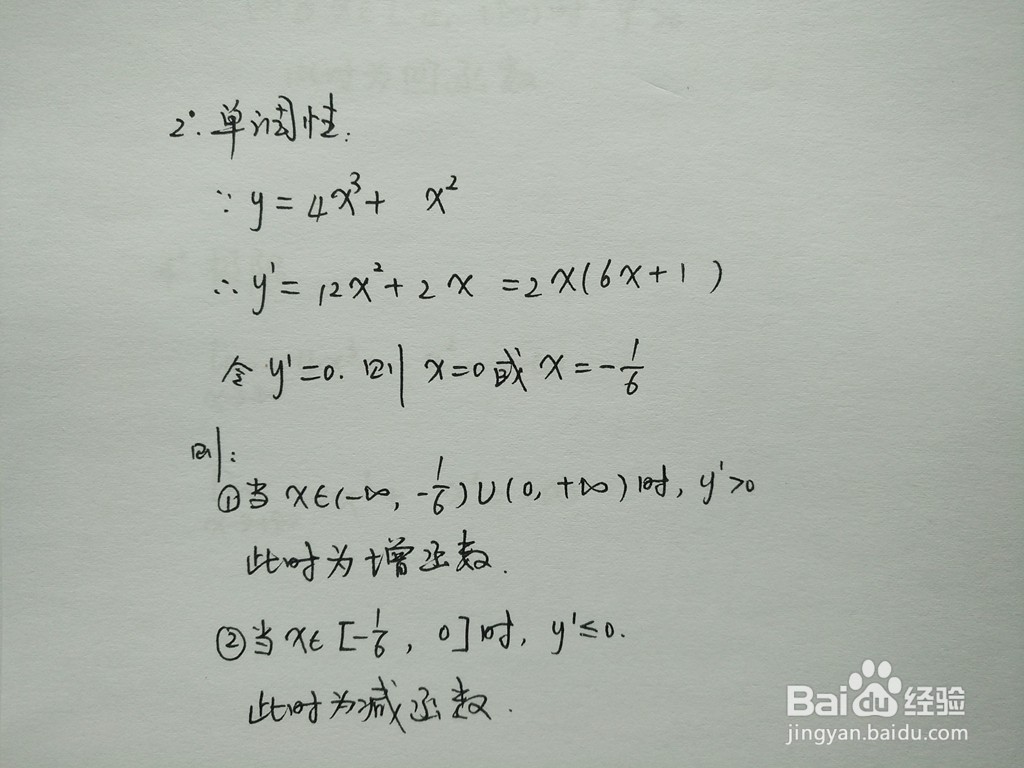 2°. 单调性:
∵ y = 4x³ + x²
∴ y' = 12x² + 2x = 2x(6x+1)
令 y'=0. 则 x=0 或 x=-1/6
则:
①当 x∈(-∞, -1/6)∪(0, +∞)时, y'>0
此时为增函数.
②当 x∈[-1/6, 0]时, y'≤0.
此时为减函数.
Baidu经验
jingyan.baidu.com